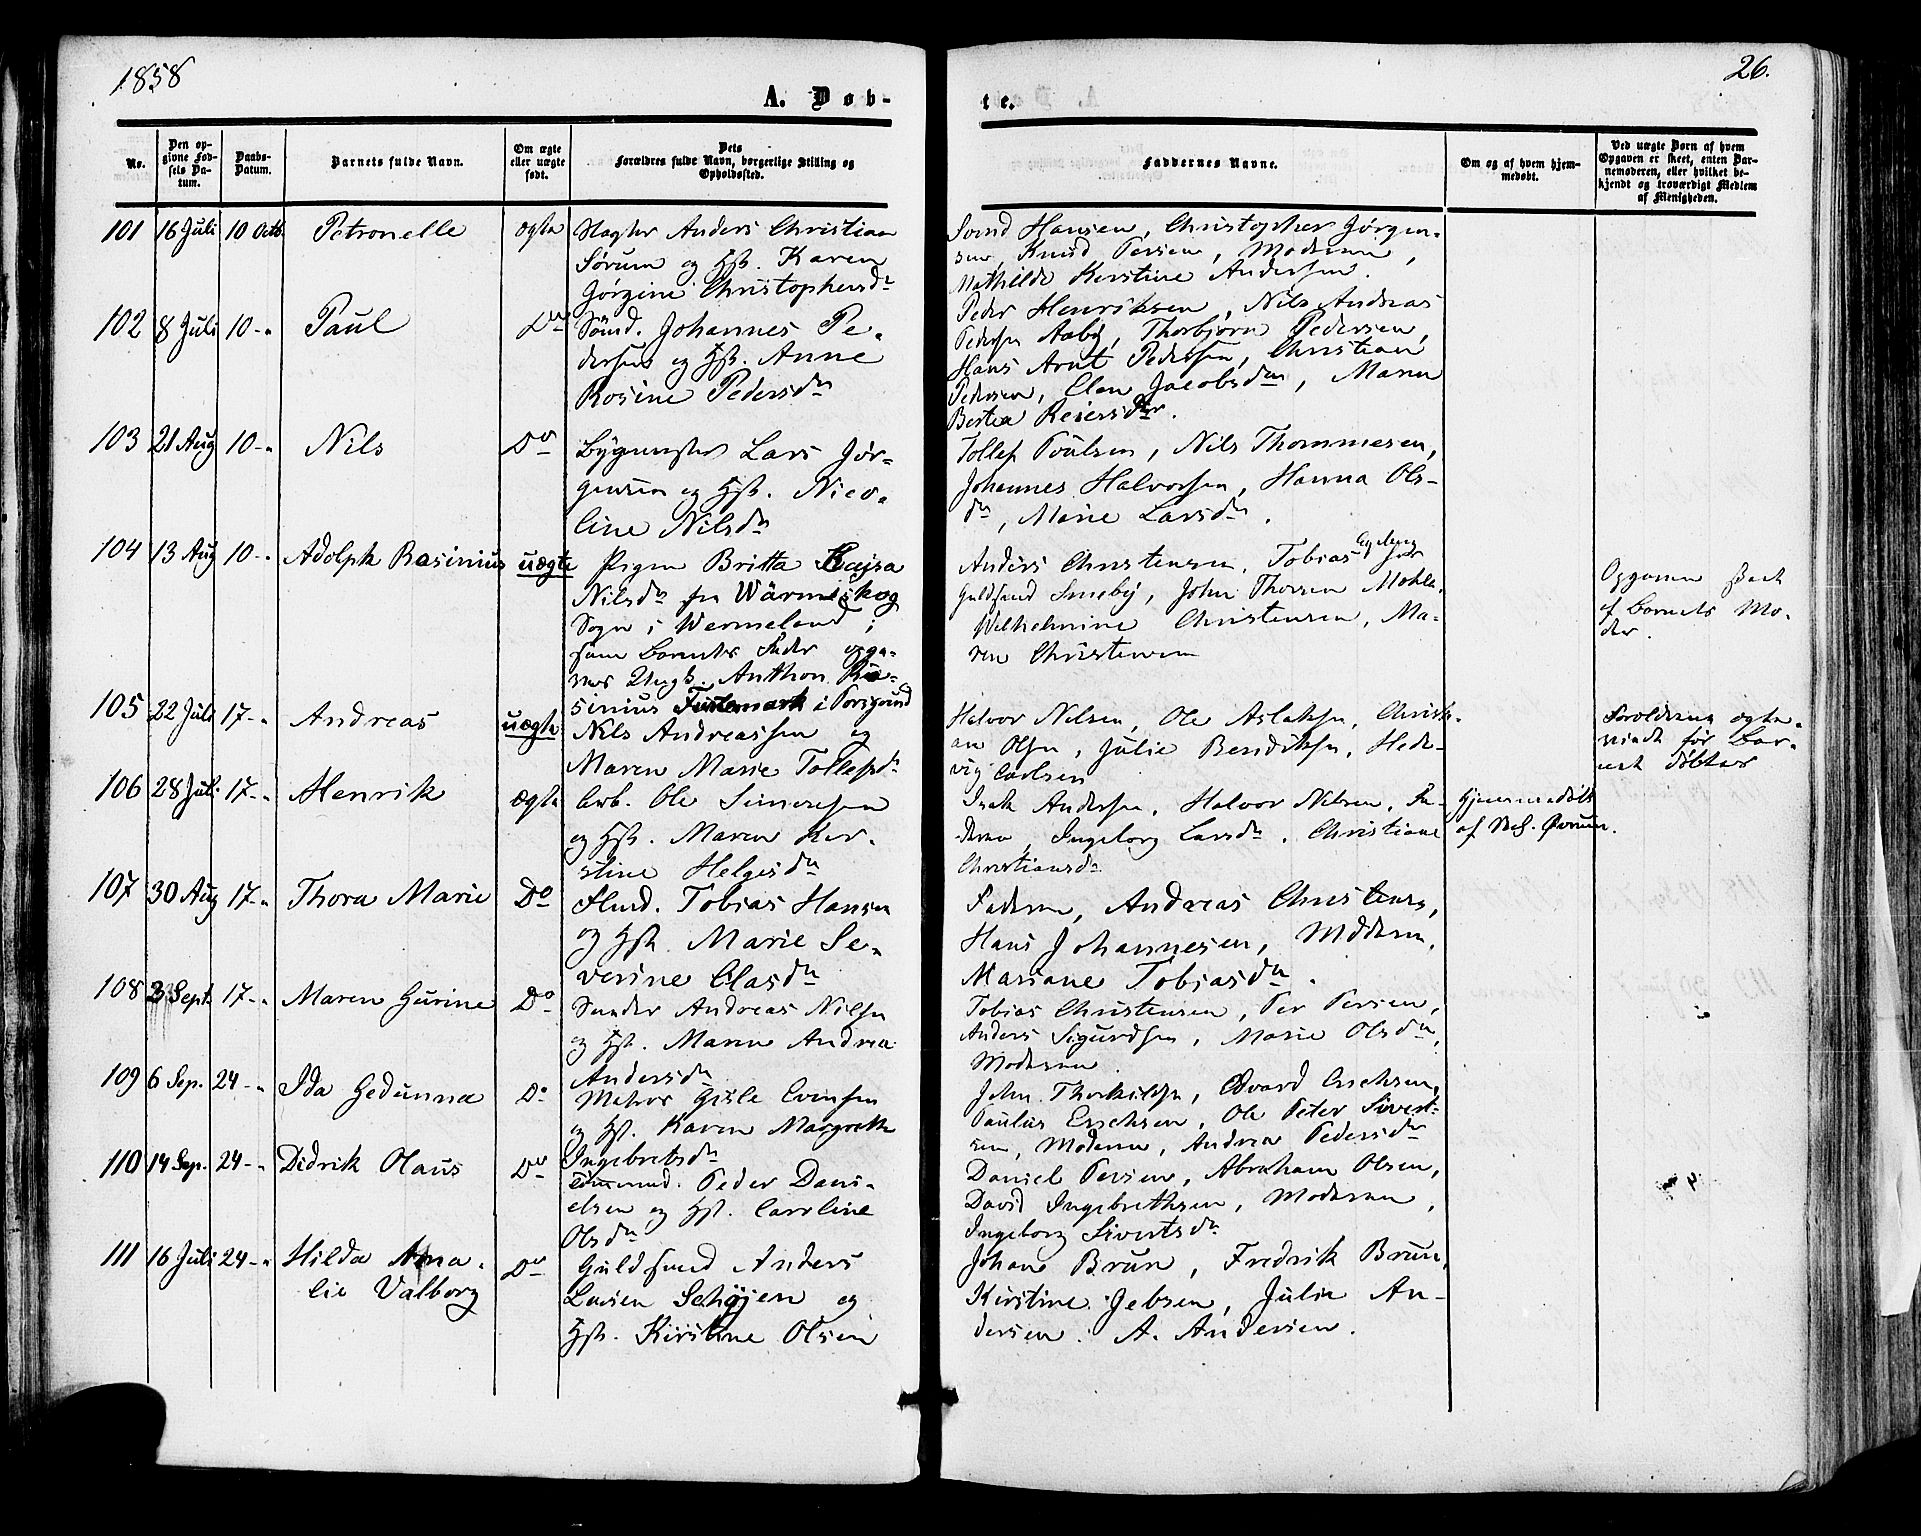 1858
26.
A. Døb-
te.
No.
Den op-
givne Fød-
sels Da-
tum.
Daabs-
Datum.
Barnets fulde Navn.
Om ægte
eller uægte
født.
Dets
Forældres fulde Navn, borgerlige Stilling og
Opholdssted.
Faddernes Navne.
Om og af hvem hjem-
medøbt.
Ved uægte Børn af hvem
Opgaven er skeet, enten Bar-
nemoderen, eller hvilket be-
kjendt og troværdigt Medlem
af Menigheden.
101 16 Juli 10 Octb. Petronelle ægte Slagter Anders Christian
Sørum og Hst. Karen
Jørgine Christophersdr
Hansen, Christopher Jørgen-
sen, Knud Persen, Moderen,
Mathilde Kerstine Andersen.
102 8 Juli 10-" Paul Do Johannes Pe-
dersen og Hst. Anne
Rosine Pedersdr
Peder Henriksen, Nils Andreas
Pedersen Aaby, Thorbjørn Pedersen,
Hans Arnt Pedersen, Christian
Pedersen, Elen Jacobsdr, Maren
Bertea Reiersdr.
103 21 Aug 10-" Nils Do Bygmester Lars Jør-
gensen og Hst. Nico-
line Nilsdr
Tollef Poulsen, Nils Thommesen,
Johannes Halvorsen, Hanna Ols-
dr, Marie Larsdr.
104 13 Aug 10-" Adolph Rasinius uægte Pigen Britta Kajsa
Nilsdr fra Wärmskog
Sogn i Wermeland;
som Barnets Fader opgi-
ves Ungk. Anthon Ra-
sinius i Porsgrund
Anders Christensen, Tobias
Guldsmed Smeby, John Thorsen Mohle,
Wilhelmine Christensen, Ma-
ren Christensen
Opgaven skeet
af Barnets Mo-
der.
105 22 Juli 17-" Andreas uægte Nils Andreassen og
Maren Marie Tollefsdr
Halvor Nilsen, Ole Aslaksen, Christi-
an Olsen, Julie Bendiksen, Hed-
vig Carlsen
Forældrene ægte-
viede før Bar-
net døbtes
106 28 Juli 17-" Henrik ægte Arb. Ole Simonsen
og Hst. Maren Ker-
stine Helgesdr
Isak Andersen, Halvor Nilsen, Fa-
deren, Ingeborg Larsdr, Christiane
Christiansdr
Hjemmedøbt
af Øvrum.
107 30 Aug 17-" Thora Marie Do Tobias Hansen
og Hst. Marie Se-
verine Clasdr
Faderen, Andreas Christensen,
Hans Johannesen, Moderen,
Mariane Tobiasdr.
108 3 Sept. 17-" Maren Gurine Do Andreas Nilsen
og Hst. Maren Andrea
Andersdr
Tobias Christensen, Per Persen,
Anders Sigurdsen, Marie Olsdr,
Moderen
109 6 Sep. 24-" Ida Gedunna Do Matros Gisle Evensen
og Hst. Karen Margrethe
Ingebretsdr
John Thorkilsen, Edvard Erichsen,
Paulus Erichsen, Ole Peter Sivert-
sen, Moderen, Andrea Pedersdr
110 14 Sep. 24-" Didrik Olaus Do Tømmermd. Peder Dani-
elsen og Hst. Caroline
Olsdr
Daniel Persen, Abraham Olsen,
David Ingebrethsen, Moderen,
Ingeborg Sivertsdr
111 16 Juli 24-" Hilda Ama-
lie Valborg Do Guldsmed Anders
Larsen Schøjen og
Hst. Kirstine Olsen
Johan Brun, Fredrik Brun,
Kirstine Jebsen, Julie An-
dersen. A. Andersen.